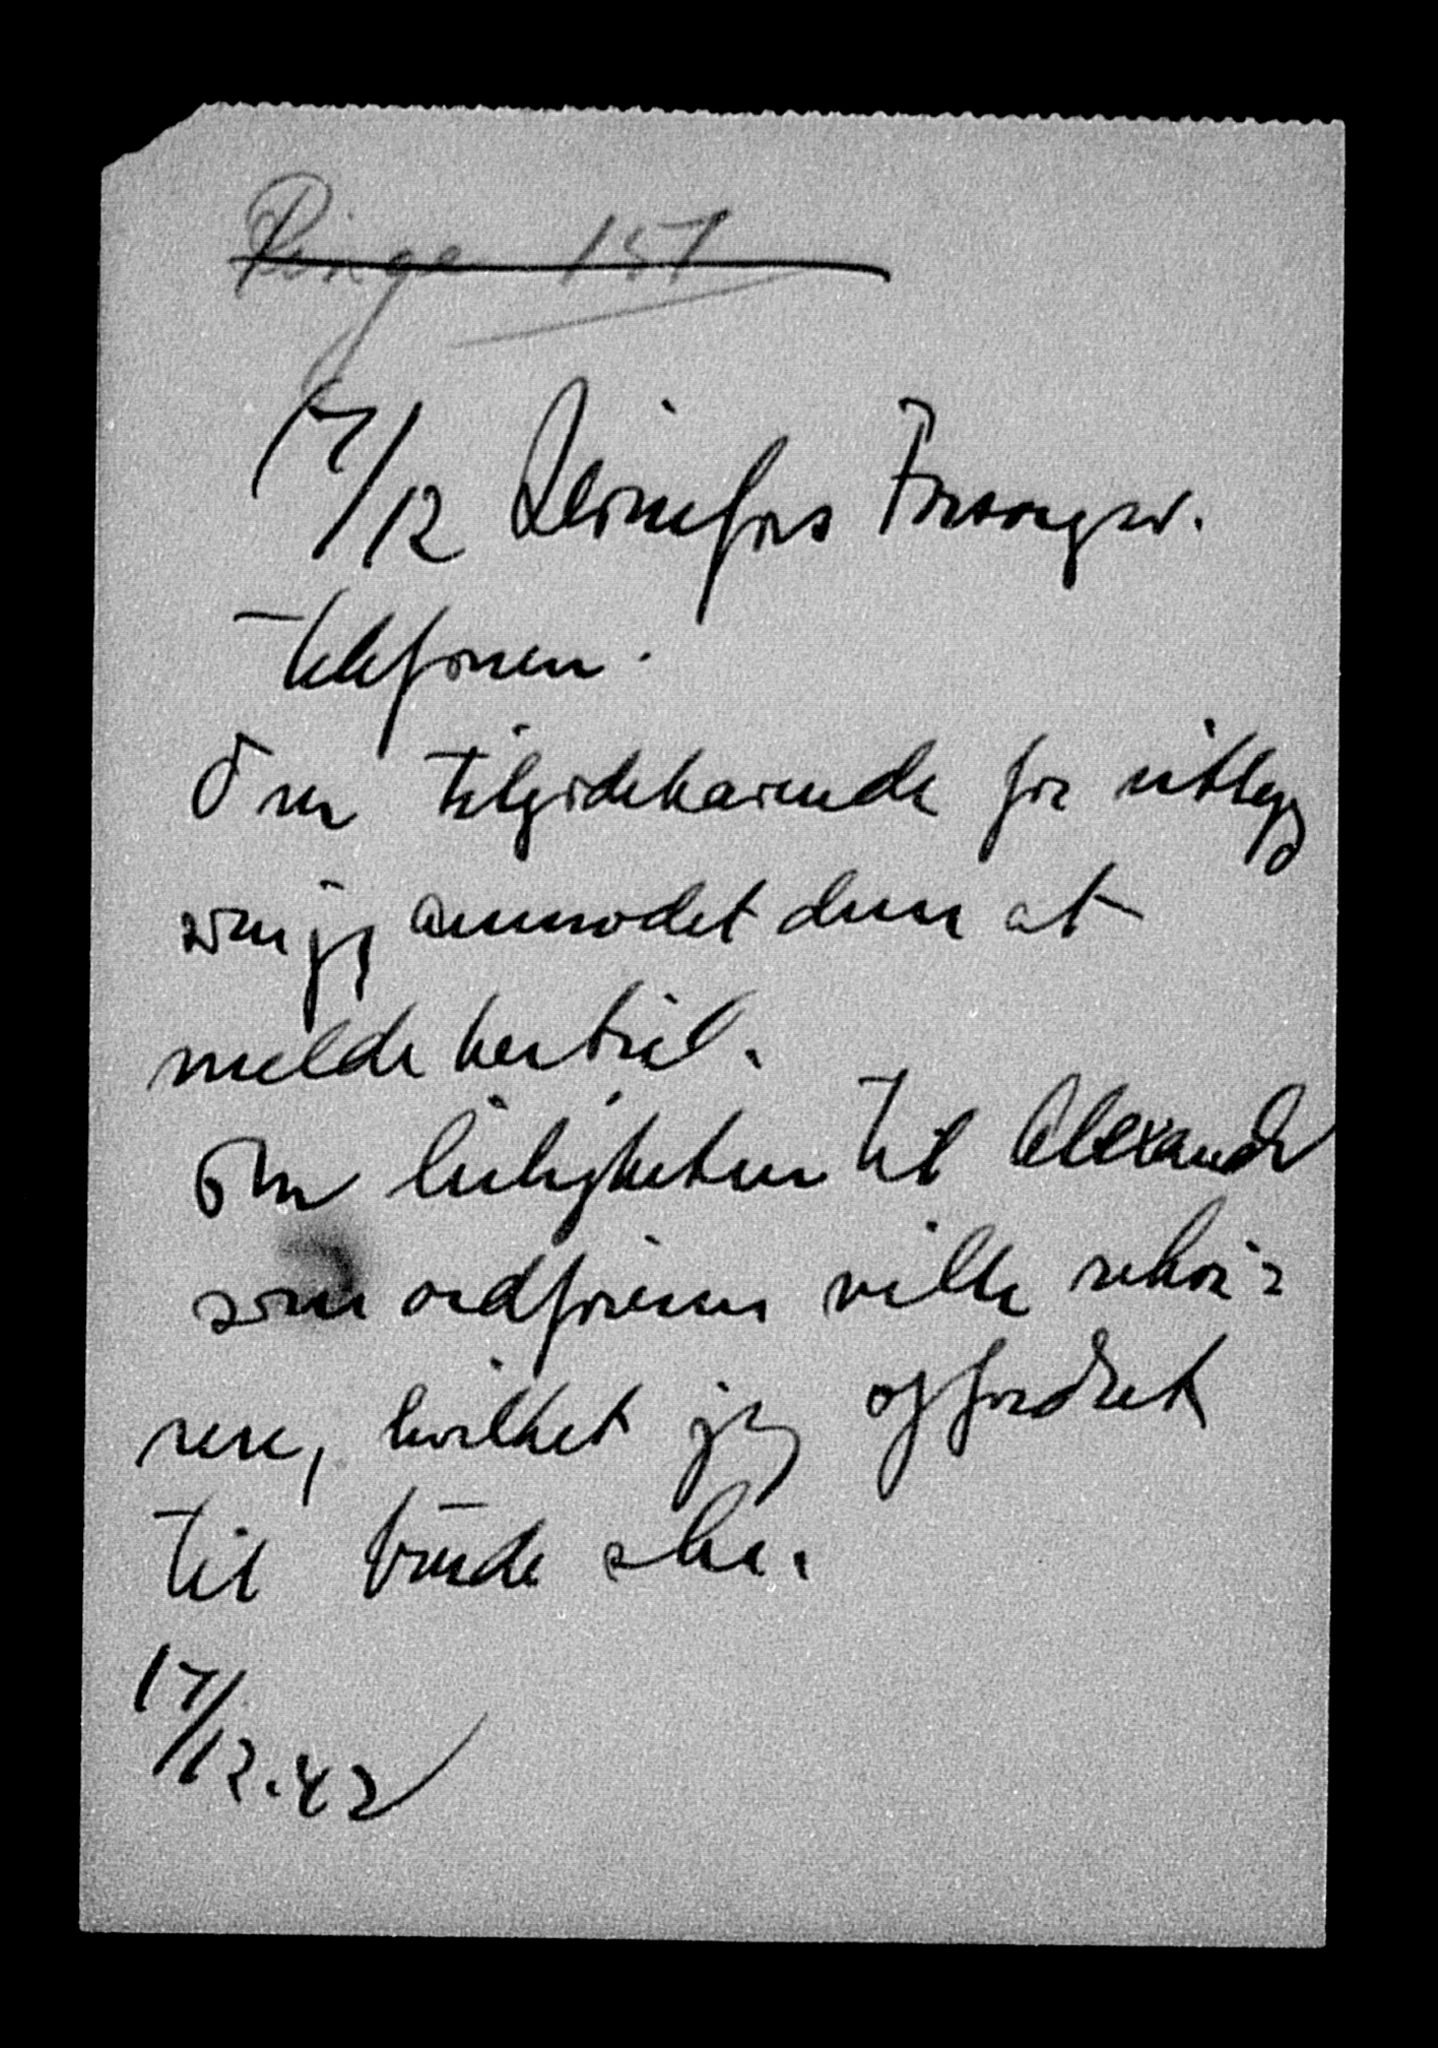 Ringe 151
17/12 Forsongsv.
telefonen.
Om tilgodehavende for utlegg
som jeg anmodet dem at
melde hertil.
Om leiligheten til Alexander
som ordføreren vilde rekvi=
rere, hvilket jeg opfordret
til burde ske.
17/12.42